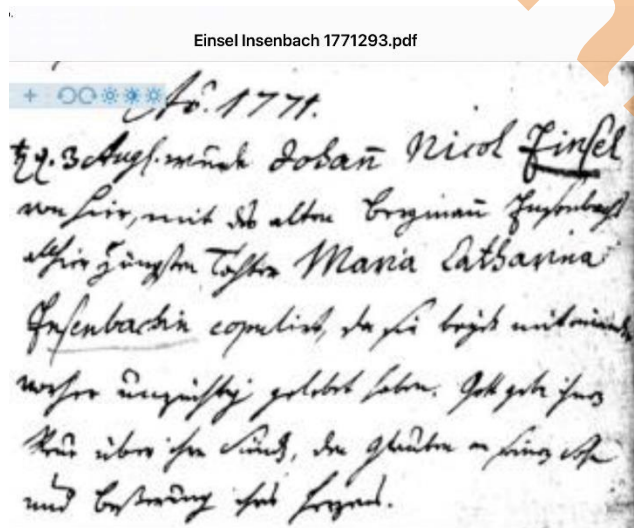 Einsel Insenbach 1771293.pdf
Ao. 1771.
d. 3 Augs. wurde Johann Nicol Einsel
von hier, mit des alten Bergmann Insenbachs
allhier jüngsten Tochter Maria Catharina
Insenbachin copulirt, da sie beyde miteinander
vorher unzüchtig gelebet haben. Gott gebe ihnen
Reue über ihre Sünde, den Glauben an seinen Sohn
und Beßerung ihres Herzens.